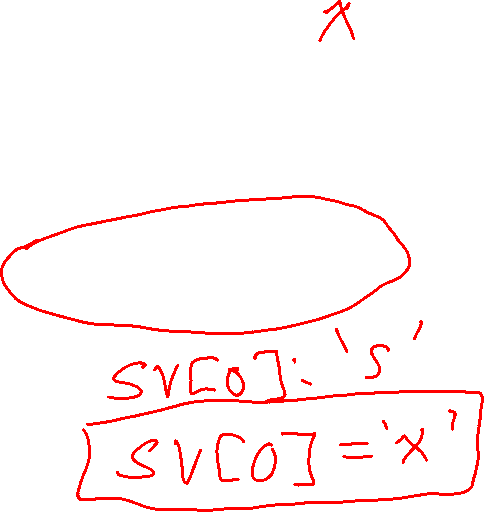 x
SV[0]: 's'
SV[0] = 'x'